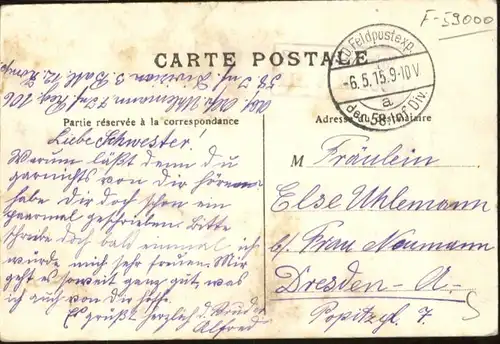 F-59000
CARTE POSTALE
K.D. Feldpostexp.
-6.5.15.9-10V
a
der 58. Inf. Div.
Abs. Uhlemann 7. Inf. Reg. 106
58. Inf. Division 3. Batl. 12. Komp.
Partie réservée à la correspondance
Adresse du Destinataire
Liebe Schwester!
Warum läßt denn du
garnichts von dir hören
habe Dir doch schon ein
paarmal geschrieben. Bitte
schreibe doch bald einmal, ich
würde mich sehr freuen. Mir
geht es soweit ganz gut, was
ich auch von dir hoffe.
Es grüßt herzlich d. Bruder
Alfred
M Fräulein
Else Uhlemann
b/ Frau Naumann
Dresden-A.
Popitzgl. 7.